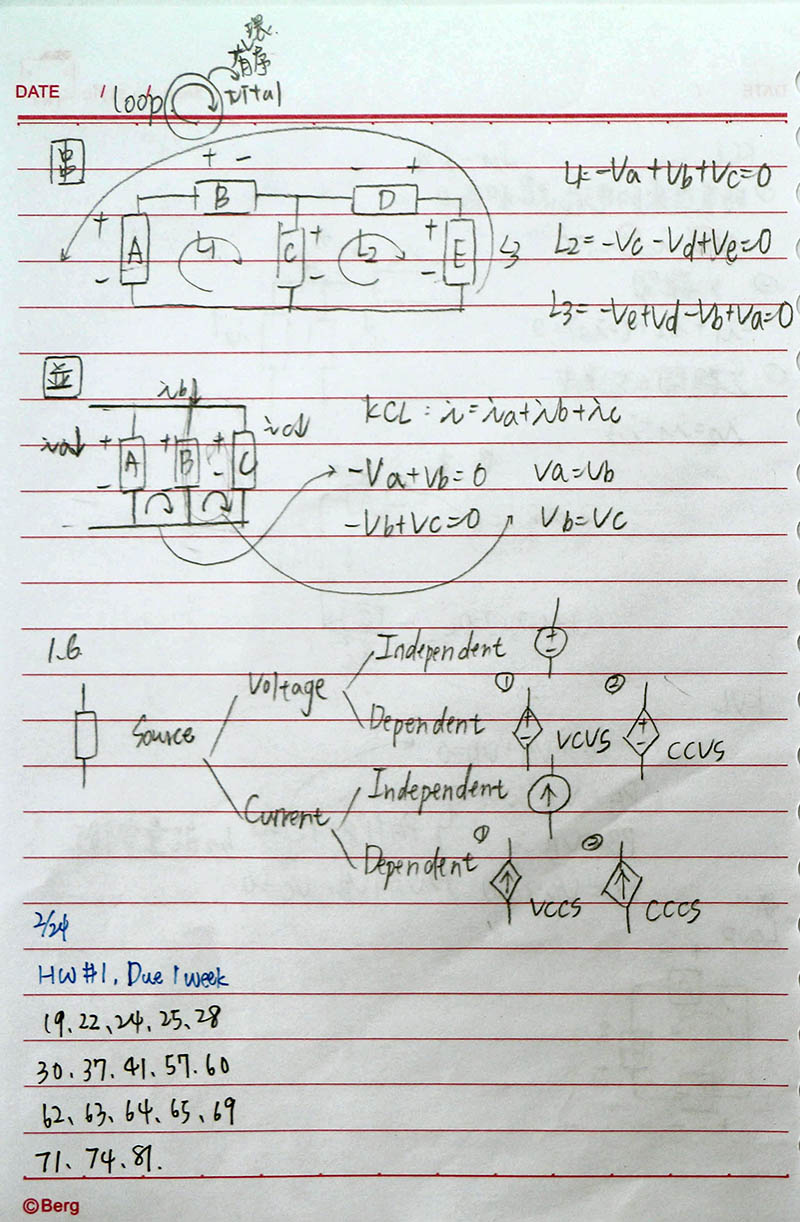 DATE / /
環
有序
loop
串
+ -
- +
B
D
+ A -
L1
C + -
L2
+ E -
L3
L1=-Va+Vb+Vc=0
L2=-Vc-Vd+Ve=0
L3=-Ve+Vd-Vb+Va=0
並
ib↓
ia↓ + A - + B + - C ic↓
KCL: i=ia+ib+ic
-Va+Vb=0 Va=Vb
-Vb+Vc=0 Vb=Vc
1.6
Source
Voltage
Independent + -
Dependent ① + - VCVS ② + - CCVS
Current
Independent
Dependent ① VCCS ② CCCS
2/24
HW#1, Due 1 week
19、22、24、25、28
30、37、41、57、60
62、63、64、65、69
71、74、81.
©Berg